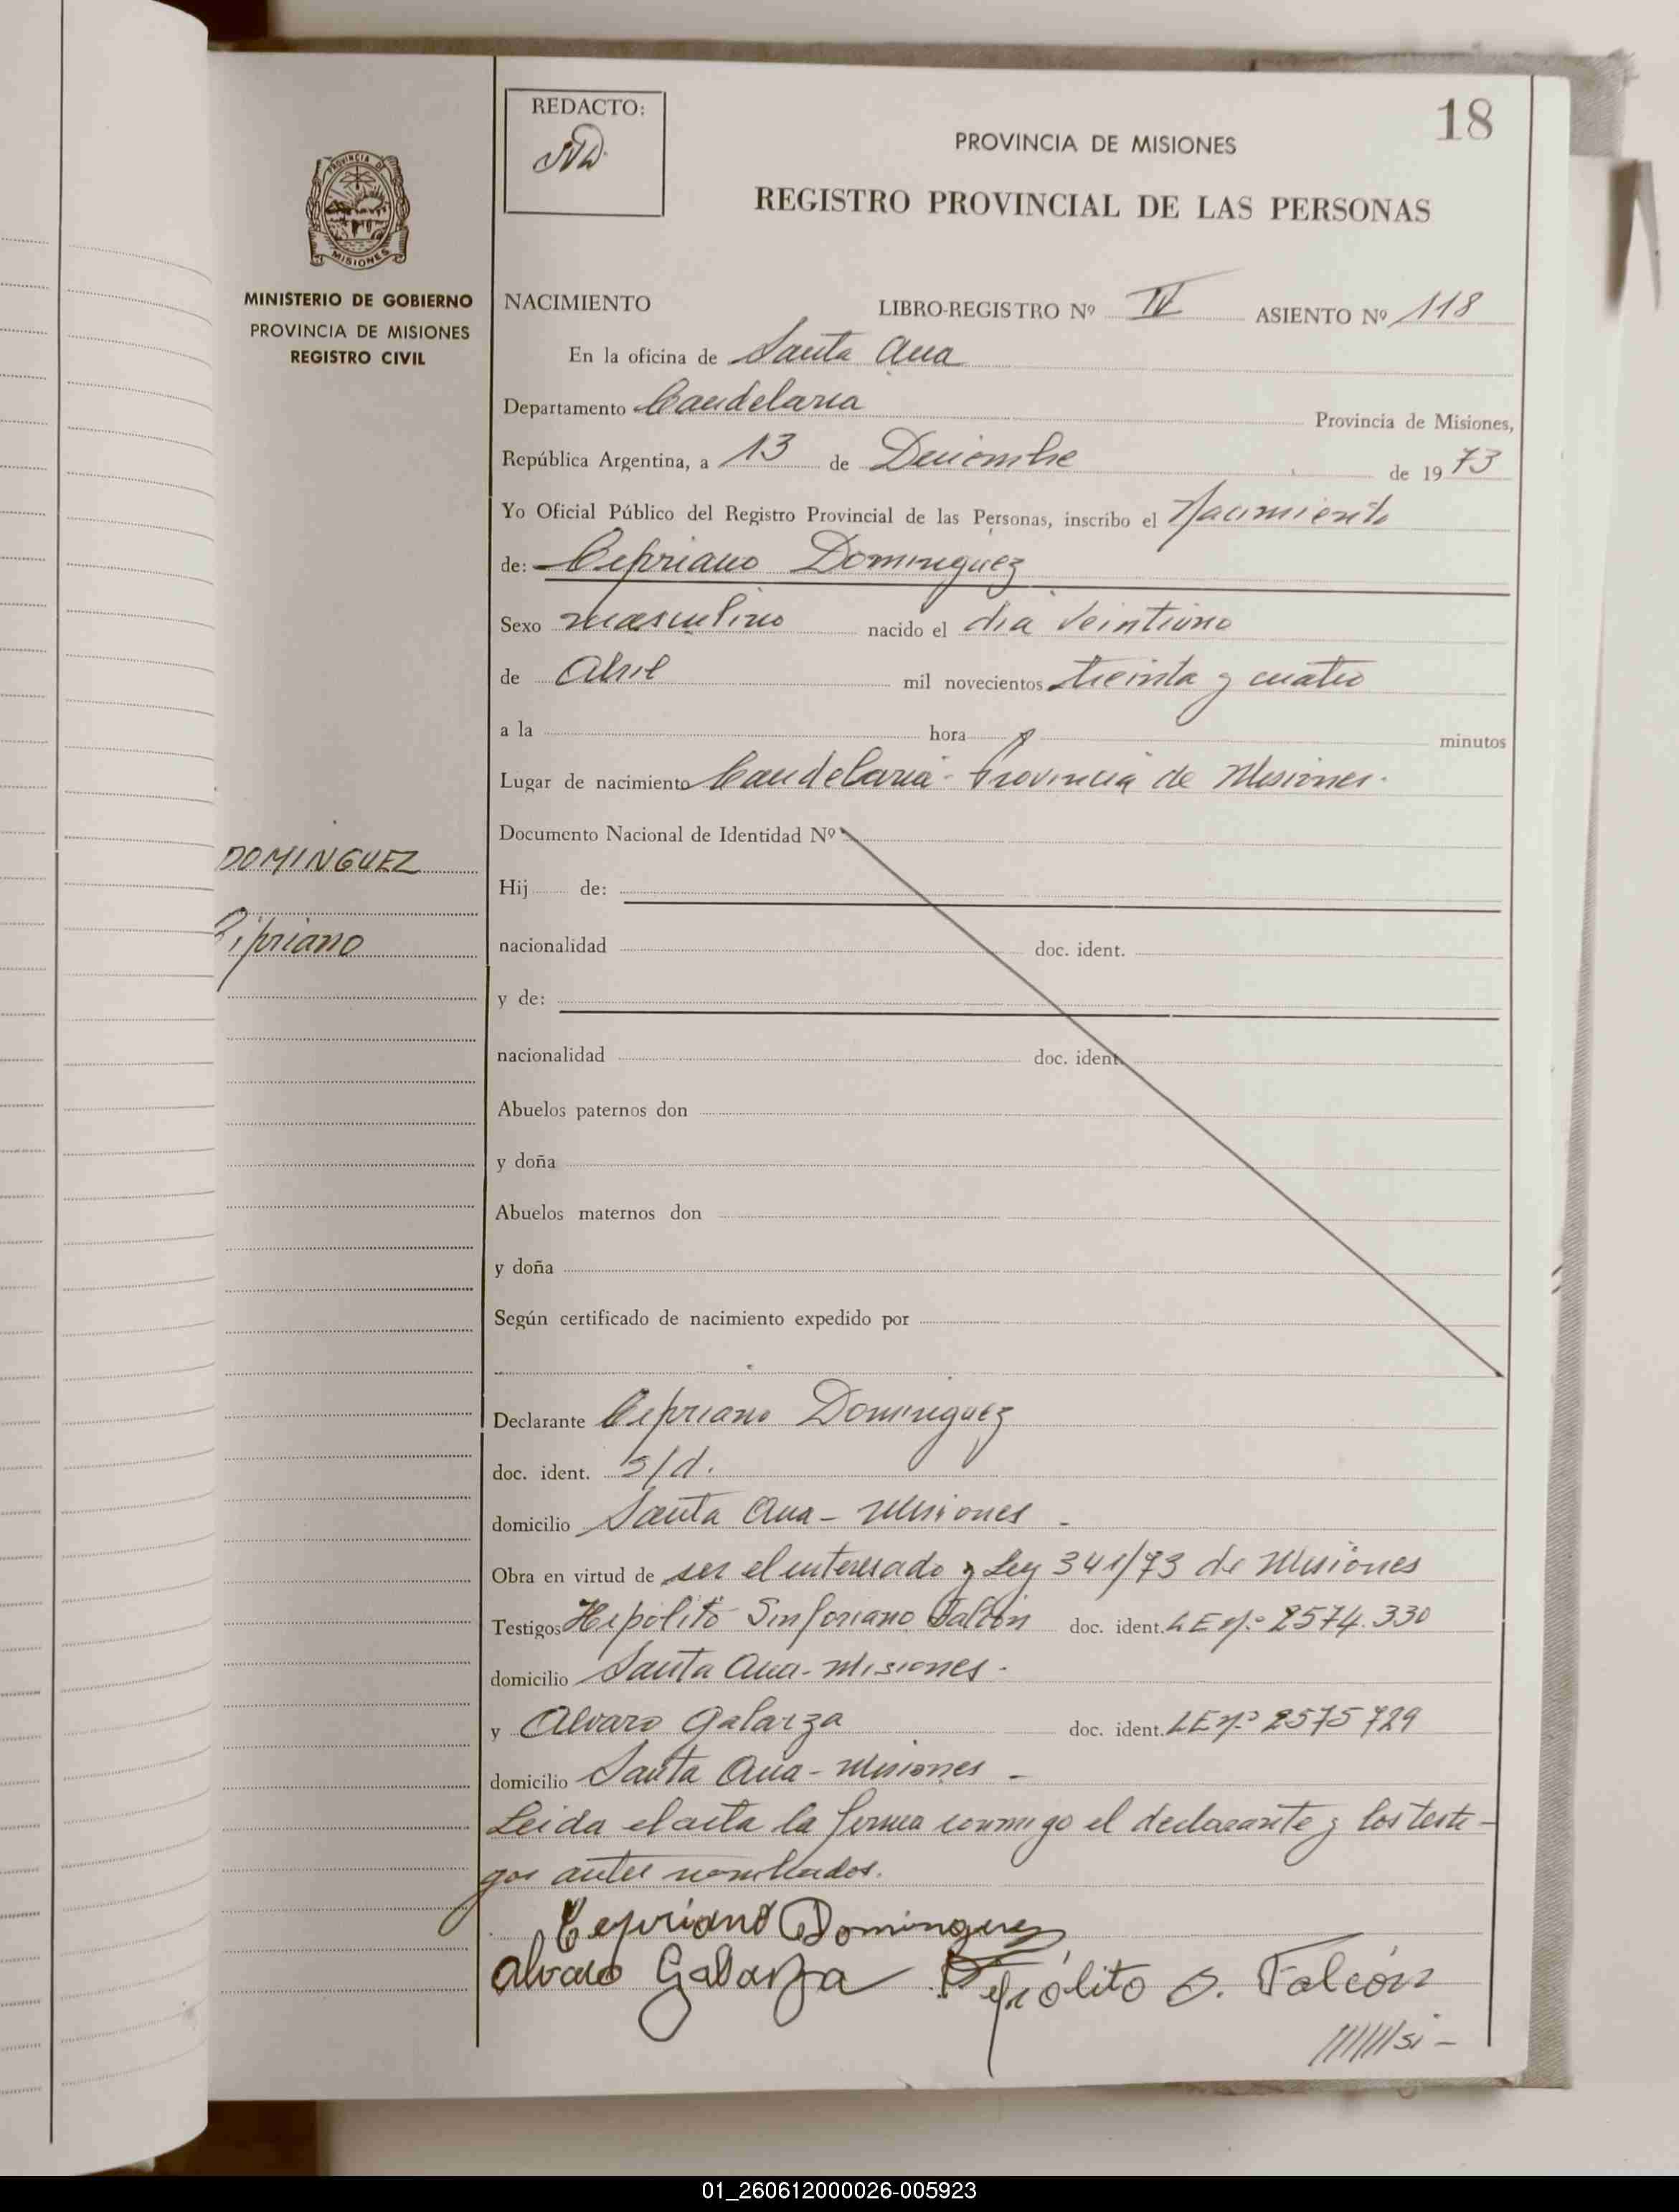 REDACTO:
18
PROVINCIA DE MISIONES
REGISTRO PROVINCIAL DE LAS PERSONAS
PROVINCIA DE
MISIONES
MINISTERIO DE GOBIERNO
PROVINCIA DE MISIONES
REGISTRO CIVIL
NACIMIENTO LIBRO-REGISTRO Nº IV ASIENTO Nº 118
En la oficina de Santa Ana
Departamento Candelaria Provincia de Misiones,
República Argentina, a 13 de Diciembre de 1973
Yo Oficial Público del Registro Provincial de las Personas, inscribo el Nacimiento
de: Cipriano Dominguez
Sexo masculino nacido el dia veintiuno
de Abril mil novecientos treinta y cuatro
a la hora minutos
Lugar de nacimiento Candelaria - Provincia de Misiones.
Documento Nacional de Identidad Nº
DOMINGUEZ
Hij de:
Cipriano
nacionalidad doc. ident.
y de:
nacionalidad doc. ident.
Abuelos paternos don
y doña
Abuelos maternos don
y doña
Según certificado de nacimiento expedido por
Declarante Cipriano Dominguez
doc. ident. s/d.
domicilio Santa Ana - Misiones -
Obra en virtud de ser el interesado y Ley 341/73 de Misiones
Testigos Hipólito Sinforiano Falcón doc. ident. L E nº 2574.330
domicilio Santa Ana - Misiones -
y Alvaro Galarza doc. ident. L E nº 2575729
domicilio Santa Ana - Misiones -
Leida el acta la firma conmigo el declarante y los testi-
gos antes nombrados.
Cepriano Dominguez
Alvaro Galarza Hipólito S. Falcón
//////si -
01_260612000026-005923